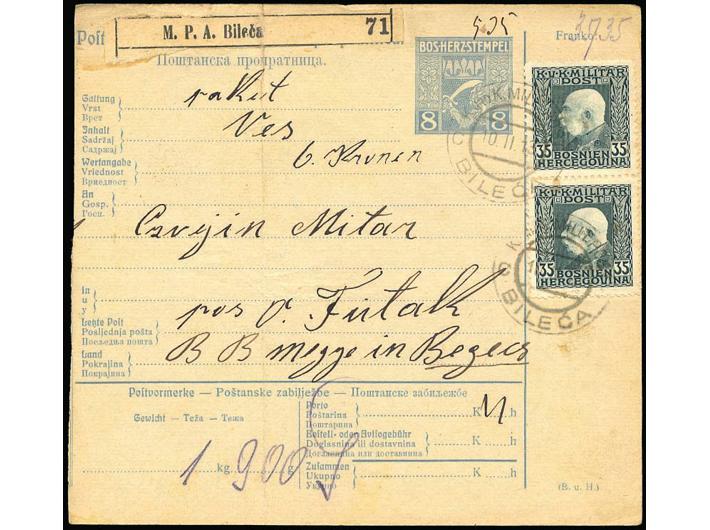 Post M. P. A. Bileća 71
Поштанска пропратница.
5,05
Franko:
3735
BOS-HERZ-STEMPEL
8 8
K.u.K.MILITÄR
POST
35 35
BOSNIEN
HERCEGOVINA
K.u.K.MILITÄR
POST
35 35
BOSNIEN
HERCEGOVINA
BILEĆA
BILEĆA
Gattung
Vrst
Врст
Inhalt
Sadržaj
Садржај
Wertangabe
Vriednost
Вриједност
An
Gosp.
Госп.
paket
Ves
6. Kronen
Mitar
in
u
у
Letzte Post
Posljednja pošta
Посљедња пошта
Land
Pokrajina
Покрајина
pos p. Futak
B B megye in
Postvormerke — Poštanske zabilježbe — Поштанске забиљежбе
Gewicht — Teža — Тежа
1 kg 900 g
Porto
Poštarina
Поштарина
K h
Bestell- oder Avisogebühr
Doglasnina ili dostavnina
Догласнина или доставнина
K h
Zusammen
Ukupno
Укупно
K h
(B. u. H.)